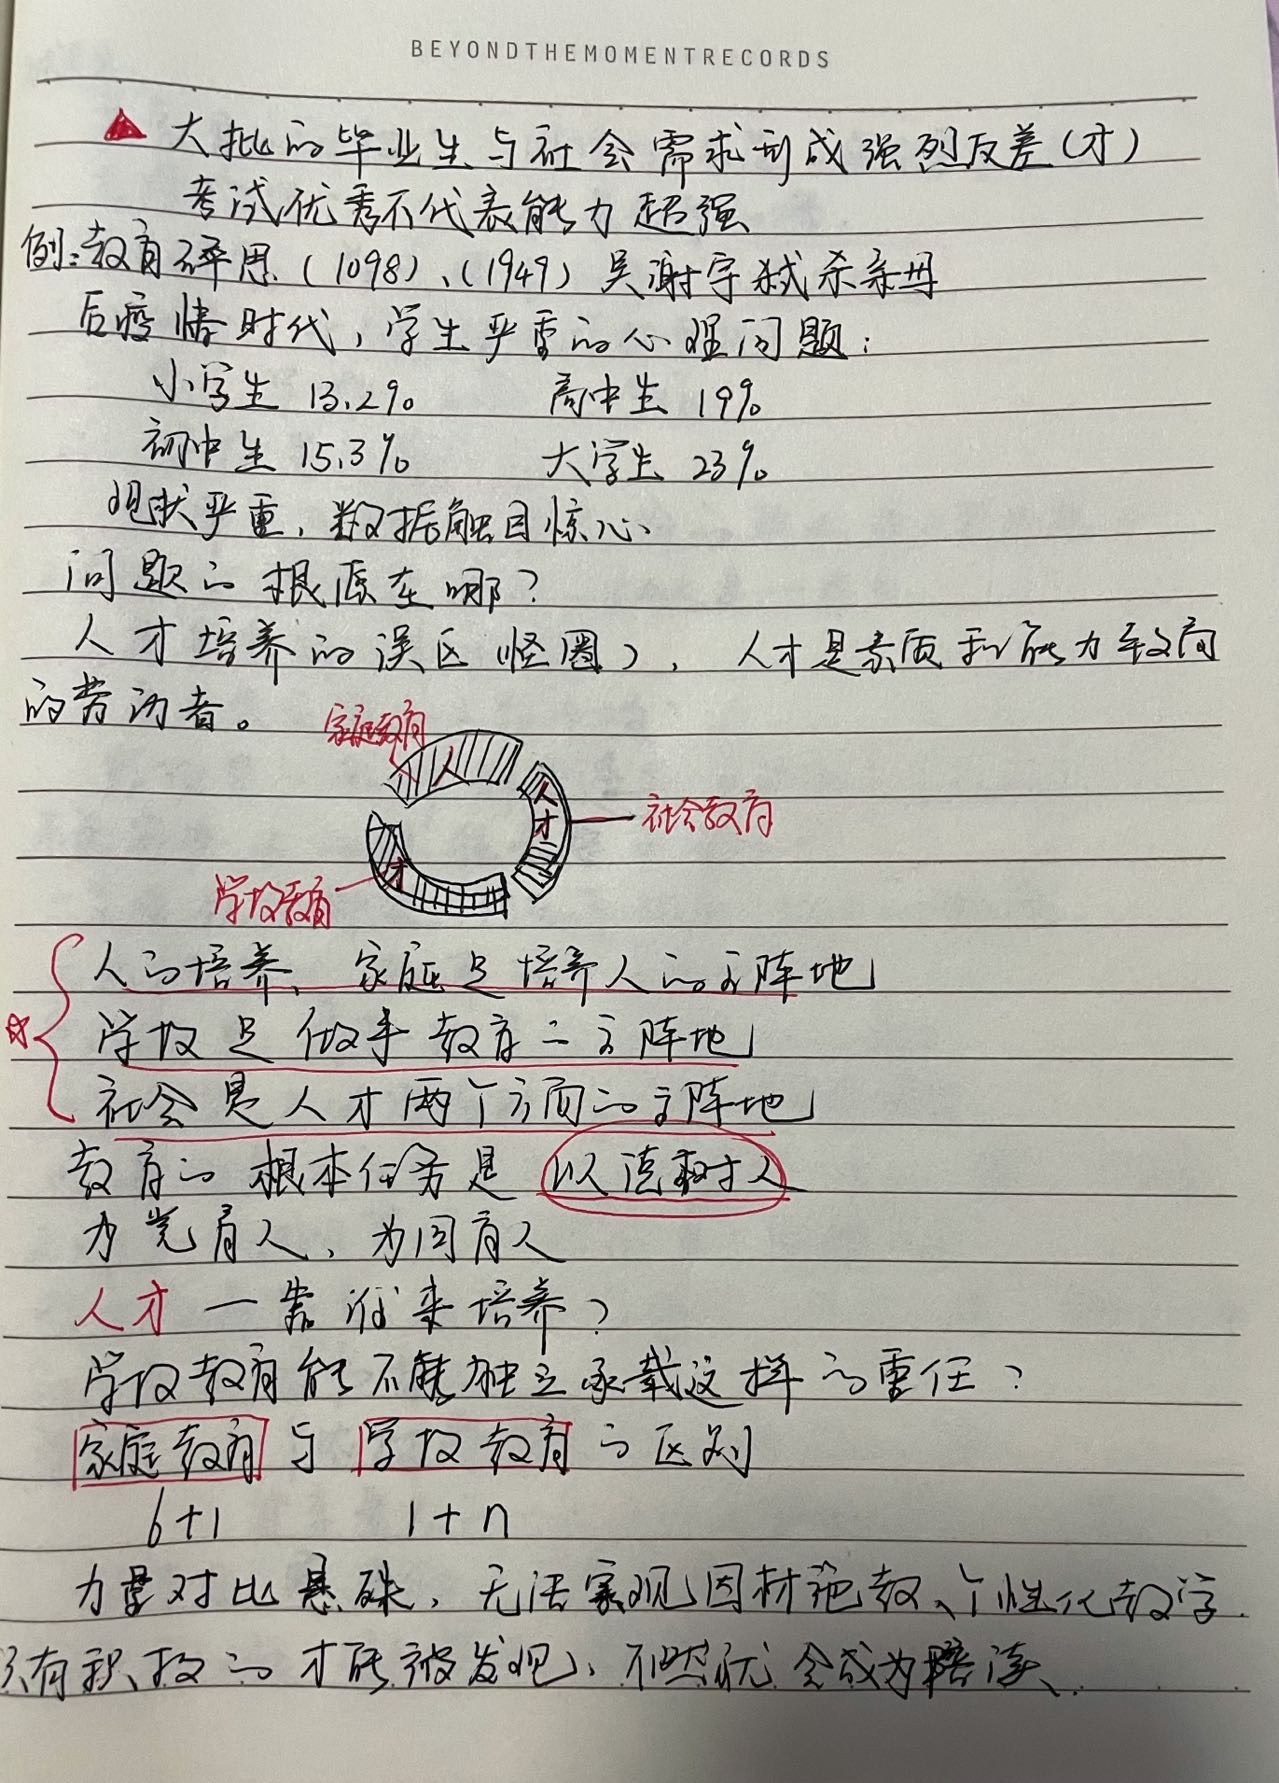 BEYONDTHEMOMENTRECORDS
大批的毕业生与社会需求形成强烈反差(才)
考试优秀不代表能力超强
例:教育碎思.(1098)、(1949)吴谢宇弑杀亲母
后疫情时代,学生严重的心理问题:
小学生 13.2% 高中生 19%
初中生 15.3% 大学生 23%
现状严重,数据触目惊心.
问题的根原在哪?
人才培养的误区(怪圈),人才是素质和能力较高
的劳动者。
家庭教育
人
人才
社会教育
才
学校教育
人的培养、家庭是培养人的主阵地
学校是做 教育二主阵地
社会是人才两个方面的主阵地
教育的根本任务是以德树人
为党育人、为国育人
人才一靠谁来培养?
学校教育能不能独立承载这样的重任?
家庭教育与学校教育的区别
6+1 1+n
力量对比悬殊,无法实现因材施教、个性化教学.
只有积极的才能被发现、不然就会成为陪读、